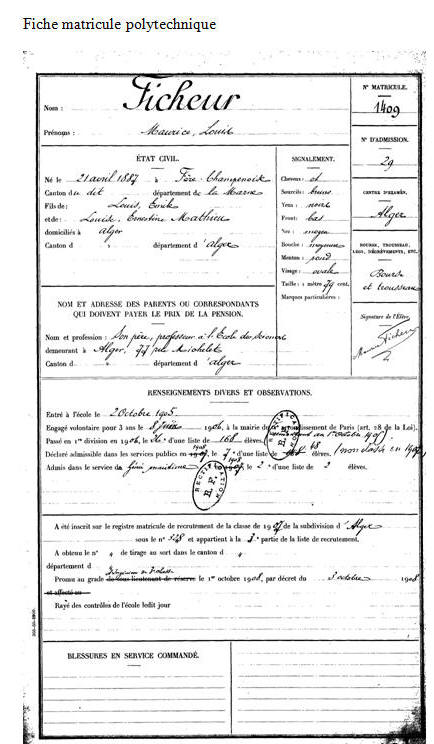 Fiche matricule polytechnique
Nom : Ficheur
Prénoms : Maurice, Louis
N° MATRICULE.
1409
N° D'ADMISSION.
29
CENTRE D'EXAMEN.
Alger
BOURSE, TROUSSEAU,
ETC.
Bourse
et trousseau
Signature de l'Élève.
Ficheur
ÉTAT CIVIL.
Né le 21 avril 1887 à Fère-Champenoise
Canton du dit département de la Marne
Fils de : Louis, Emile
et de : Louise, Ernestine Mathieu
domiciliés à Alger
Canton d département d'Alger
SIGNALEMENT.
Cheveux :
Sourcils : bruns
Yeux : noirs
Front : bas
Nez : moyen
Bouche : moyenne
Menton : rond
Visage : ovale
Taille : 1 mètre 79 cent.
Marques particulières :
NOM ET ADRESSE DES PARENTS OU CORRESPONDANTS
QUI DOIVENT PAYER LE PRIX DE LA PENSION.
Nom et profession : Son père, professeur à l'Ecole des Sciences
demeurant à Alger, 77 rue Michelet
Canton d département d'Alger
RENSEIGNEMENTS DIVERS ET OBSERVATIONS.
Entré à l'école le 2 Octobre 1905
Engagé volontaire pour 3 ans le 8 juin 1906, à la mairie du arrondissement de Paris (art. 28 de la Loi).
Passé en 1re division en 1906, le d'une liste de 168 élèves.
Déclaré admissible dans les services publics en 1907, le 7e d'une liste de élèves. (non classé en 1907)
1908
Admis dans le service du Génie maritime 1907, le 2e d'une liste de 2 élèves.
RECTIFICATION
R.F.
RECTIFICATION
R.F.
A été inscrit sur le registre matricule de recrutement de la classe de 1907 de la subdivision d'Alger
sous le n° 348 et appartient à la 3e partie de la liste de recrutement.
A obtenu le n° " de tirage au sort dans le canton d "
département d "
Promu au grade de sous-lieutenant de réserve le 1er octobre 1908, par décret du 3 octobre 1908
et affecté au
Rayé des contrôles de l'école ledit jour
BLESSURES EN SERVICE COMMANDÉ.